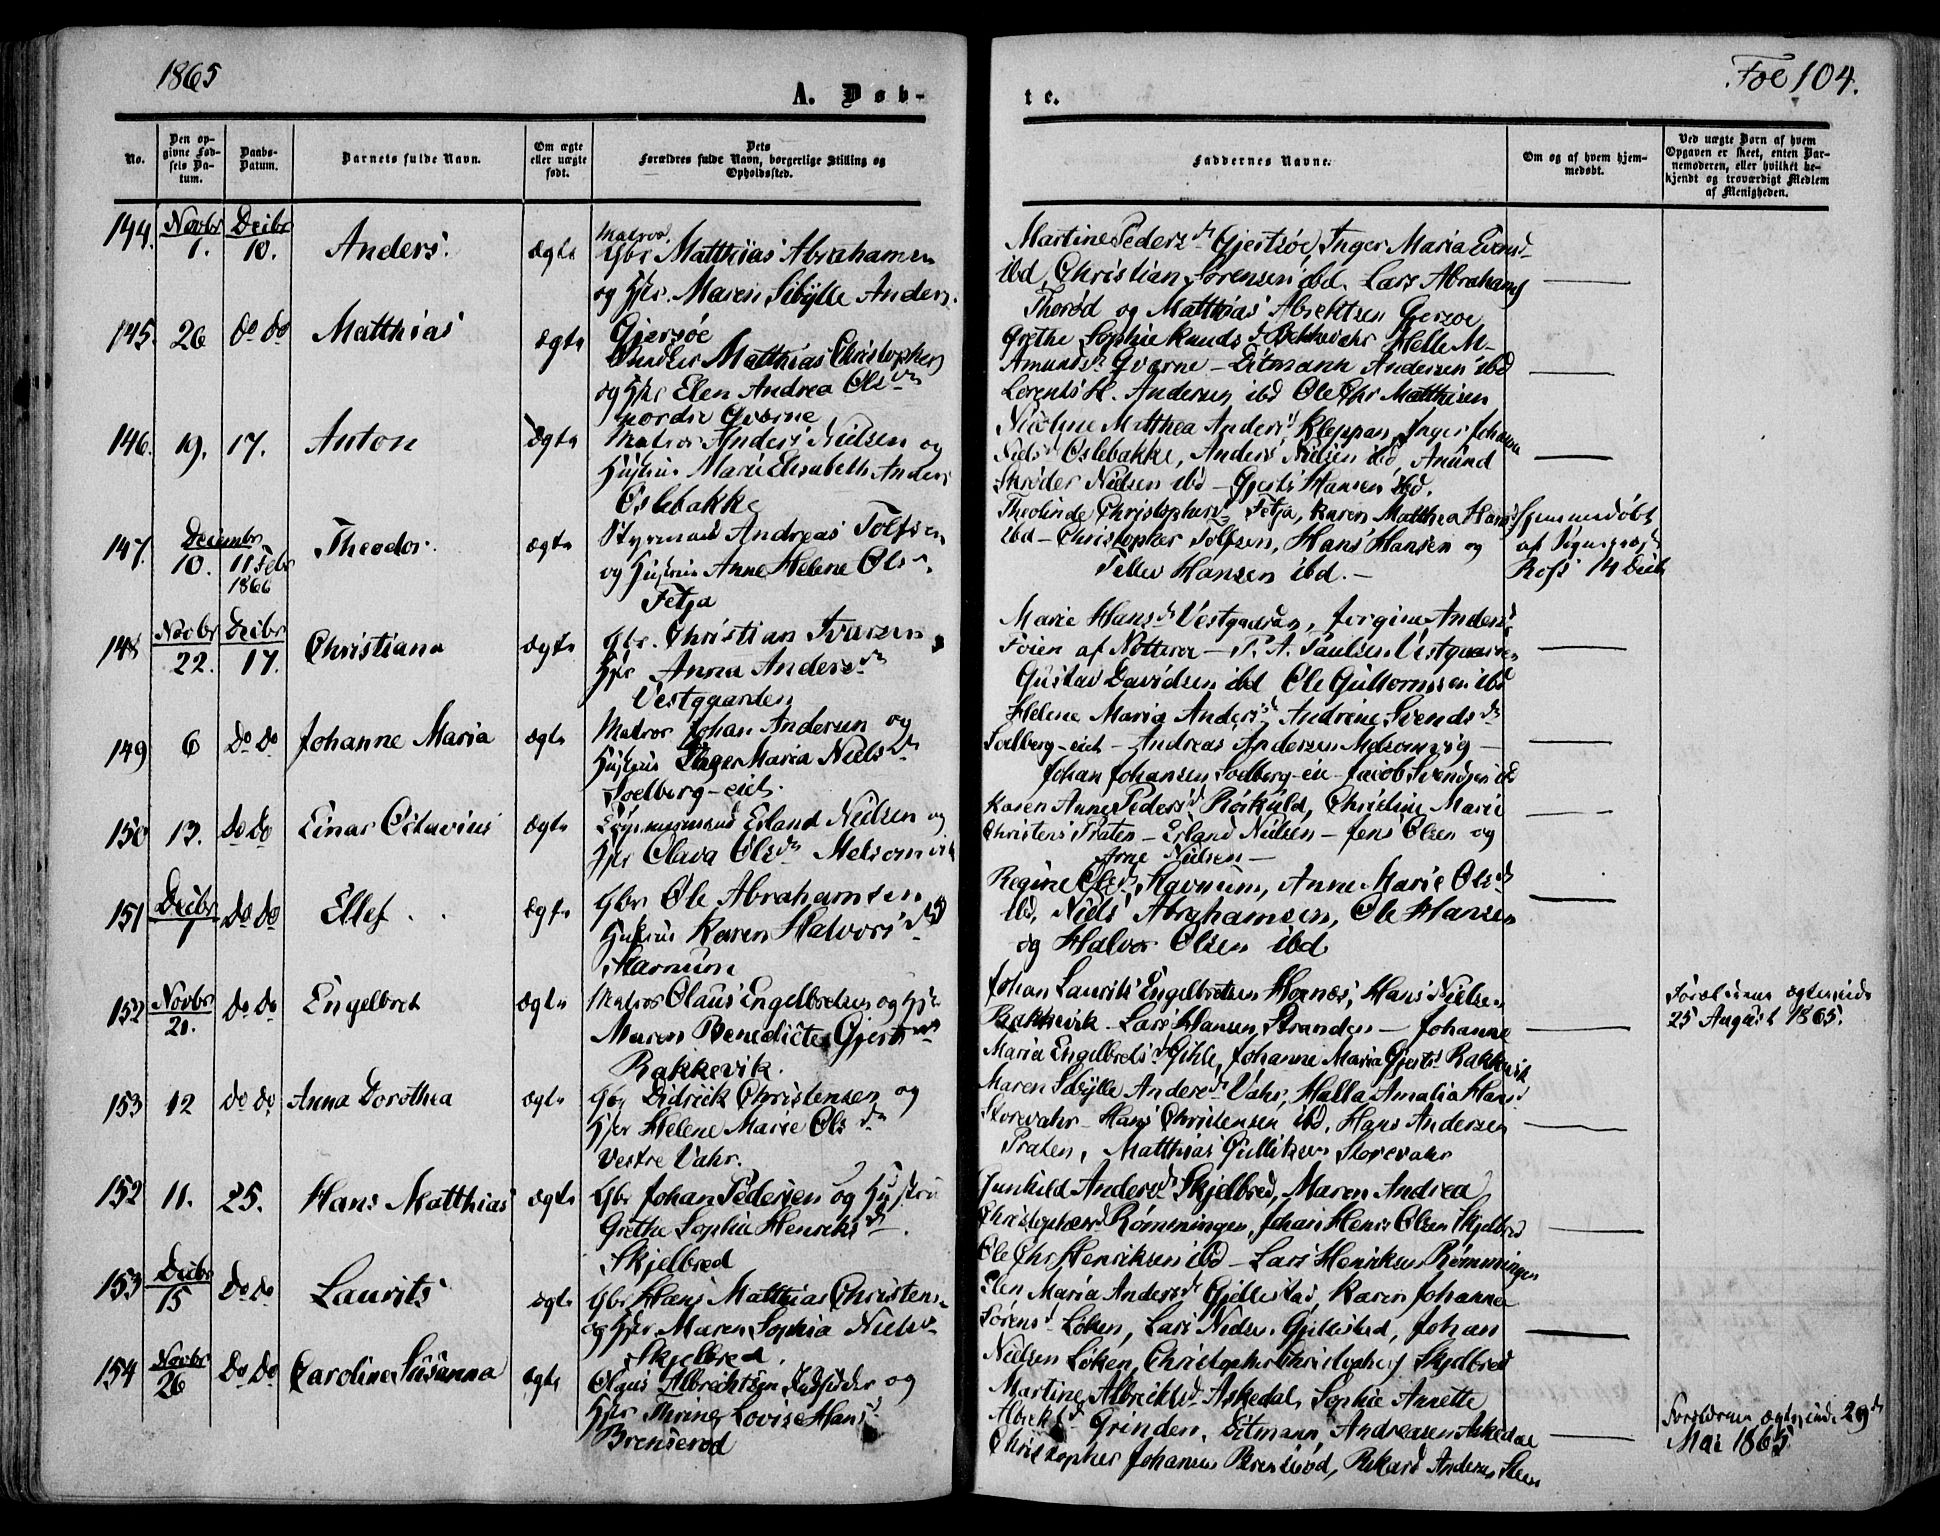 1865
Fol 104.
A. Døb-
te.
No.
Den op-
givne Fød-
sels Da-
tum.
Daabs-
Datum.
Barnets fulde Navn.
Om ægte
eller uægte
født.
Dets
Forældres fulde Navn, borgerlige Stilling og
Opholdssted.
Faddernes Navne.
Om og af hvem hjem-
medøbt.
Ved uægte Børn af hvem
Opgaven er skeet, enten Bar-
nemoderen, eller hvilket be-
kjendt og troværdigt Medlem
af Menigheden.
144. Novbr 1. Decbr 10. Anders. ægte
Matros
Gbr Matthias Abrahamsen
og Hjr. Maren Sibylle Anders.
Gjersøe
Martine Peders d Gjertsøe, Inger Maria Evens d
ibd, Christian Sørensen ibd. Lars Abrahams
Thorød og Matthias Abrektsen Gersoe
145. 26 do do Matthias ægte
Matthias Christophers
og Hjr Elen Andrea Ols dr
nordre Qværne
Grethe Sophie Knuds d Helle M.
Amunds d Qværne - Ditmann Andersen ibd
Lorents H. Andersen ibd Ole Chr Matthisen
146. 19. 17. Anton ægte
Matros Anders Nielsen og
Hustru Marie Elisabeth Anders
Oslebakke
Nicoline Matthea Anders d Kleppan, Inger Johanne
Niels d Oslebakke, Anders Nielsen ibd, Amund
Skrøder Nielsen ibd - Gjerts Hansen ibd.
147. December 10. 11 Febr 1866 Theodor. ægte
Styrmand Andreas Tolfsen
og Hustru Anne Helene Ols d.
Fetja
Theolinde Christophers d Fetja, Karen Matthea Hans d
ibd - Christopher Tolfsen, Hans Hansen og
Tellev Hansen ibd. -
Hjemmedøbt
af
Rofs 14 Decb
148 Novbr 22. Decbr 17. Christiana ægte
Gbr. Christian Iversen
Hjr Anna Anders dr
Vestgaarden
Marie Hans d Vestgaarden, Jorgine Anders d
Foien af Nøtterøe - P. A. Paulsen Vestgaarden
Gustav Davidsen ibd Ole Guttormsen ibd
149 6 Do Do Johanne Maria ægte
Matros Johan Andersen og
Hustru Inger Maria Niels dr
Soelberg-eiet.
Helene Maria Anders d, Andrine Svends dr
Soelberg-eiet - Andreas Andersen Melsomvig -
Johan Johansen Soelberg-eie - Jacob Svendsen ibd
150 13. Do Do Einar Octavius ægte
Tømmermand Erland Nielsen og
Hjr Olava Ols dr Melsomvik
Karen Anne Peders d Røskuld, Christine Marie
Christens Praten - Erland Nielsen - Jens Olsen og
Arne Nielsen -
151 Decbr 1 Do Do Ellef. ægte
Gbr Ole Abrahamsen
Hustru Karen Halvors d
Stavnum
Regine Ols d Stavnum, Anne Marie Ols d
ibd, Niels Abrahamsen, Ole Hansen
og Halvor Olsen ibd
152 Novbr 21. Do Do Engelbret ægte
Matros Olaus Engelbretsen og Hjr
Maren Benedicte Gjerts d
Rakkevik.
Johan Laurits Engelbretsen Hornæs, Hans Nielsen
Rakkevik - Lars Hansen Stranden - Johanne
Maria Engelbrets d Gihle, Johanne Maria Gjerts Rakkevik
25 August 1865.
153 12 do do Anna Dorothea ægte
Gbr Didrick Christensen og
Hjr Helene Marie Ols dr
Vestre Vahr.
Maren Sibylle Anders d Vahr, Halla Amalia Hans d
Storevahr - Hans Christensen ibd, Hans Andersen
Praten, Matthias Gullicksen Storevahr
152 11. 25. Hans Matthias ægte
Gbr Johan Pedersen og Hustru
Grethe Sophie Henriks d
Skjelbred
Gunhild Anders d Skjelbred, Maren Andrea
Christophers d Rømmingen, Johan Henr. Olsen Skjelbred
Ole Chr Henriksen ibd - Lars Henriksen Rømmingen
153 Decbr 15 Do Do Laurits ægte
Gbr Hans Matthias Christens.
og Hjr Maren Sophia Niels d
Skjelbred.
Elen Maria Anders d Gjellestad, Karen Johanne
Sørens d Løken, Lars Niels. Gjellestad, Johan
Nielsen Løken, Christopher Christophers Skjelbred
154 Novbr 26 Do Do Caroline Susanna ægte
Olaus Albrechtsen Indsidder og
Hjr Thrine Lovise Hans d
Brenserod
Martine Albrekts d Askedal, Sophie Annette
Albrekts d Grinden, Ditmann Andreasen Askedal
Christopher Johansen Brenserød, Rikard Andersen Steen
29 d
Mai 1865